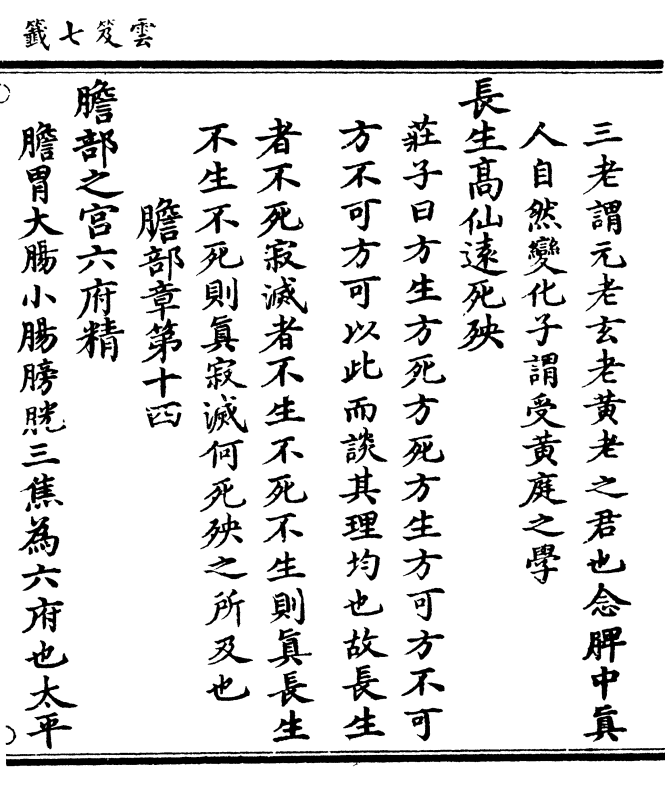 雲笈七籤
三老謂元老玄老黃老之君也念脾中眞
人自然變化子謂受黃庭之學
長生高仙遠死殃
莊子曰方生方死方死方生方可方不可
方不可方可以此而談其理均也故長生
者不死寂滅者不生不死不生則眞長生
不生不死則眞寂滅何死殃之所及也
膽部章第十四
膽部之宮六府精
膽胃大腸小腸膀胱三焦為六府也太平